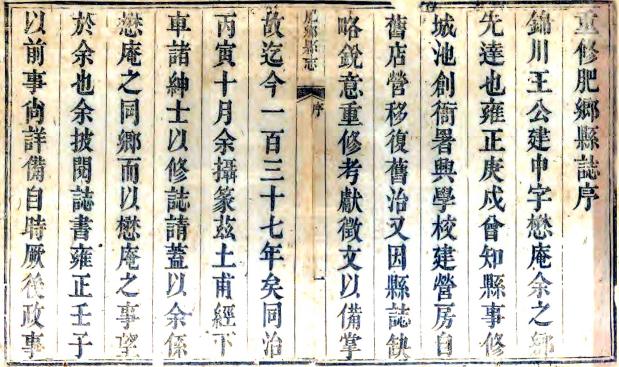 重修肥鄉縣誌序
錦川王公建中字懋庵余之鄉
先達也雍正庚戌曾知縣事修
城池創衙署興學校建營房自
舊店營移復舊治又因縣誌缺
略銳意重修考獻徵文以備掌
肥鄉縣志
序
一
故迄今一百三十七年矣同治
丙寅十月余攝篆茲土甫經下
車諸紳士以修誌請蓋以余係
懋庵之同鄉而以懋庵之事望
於余也余披閱誌書雍正壬子
以前事尚詳備自時厥後政事